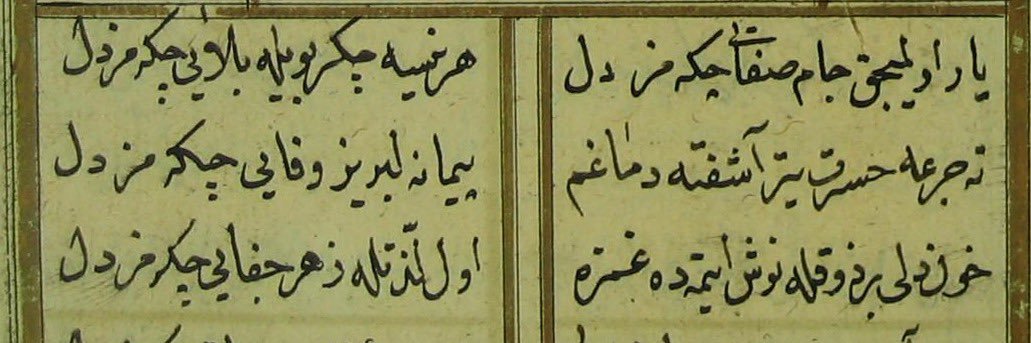 یار اولمیجق جام صفایی چکه مز دل
هر نه یسه چکر بویله بلایی چکه مز دل
ته جرعه حسرت یتر آشفته دماغم
پیمانه لبریز وفایی چکه مز دل
خون دلی بر ذوقله نوش ایتمده غمزه
اول لذتله زهر جفایی چکه مز دل